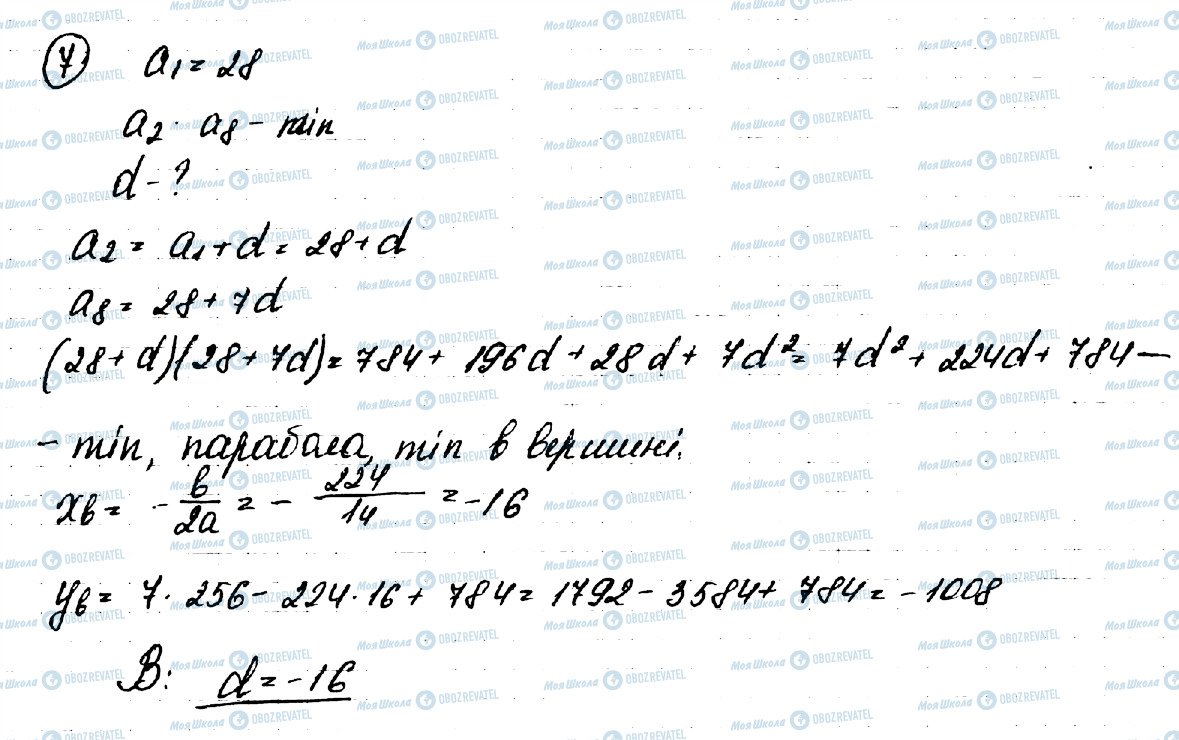 7 a₁ = 28
a₂ · a₈ - min
d - ?
a₂ = a₁ + d = 28 + d
a₈ = 28 + 7d
(28 + d)(28 + 7d) = 784 + 196d + 28d + 7d² = 7d² + 224d + 784 -
- min, парабола, min в вершині.
xв = - в/2a = - 224/14 = -16
yв = 7 · 256 - 224 · 16 + 784 = 1792 - 3584 + 784 = -1008
В: d = -16